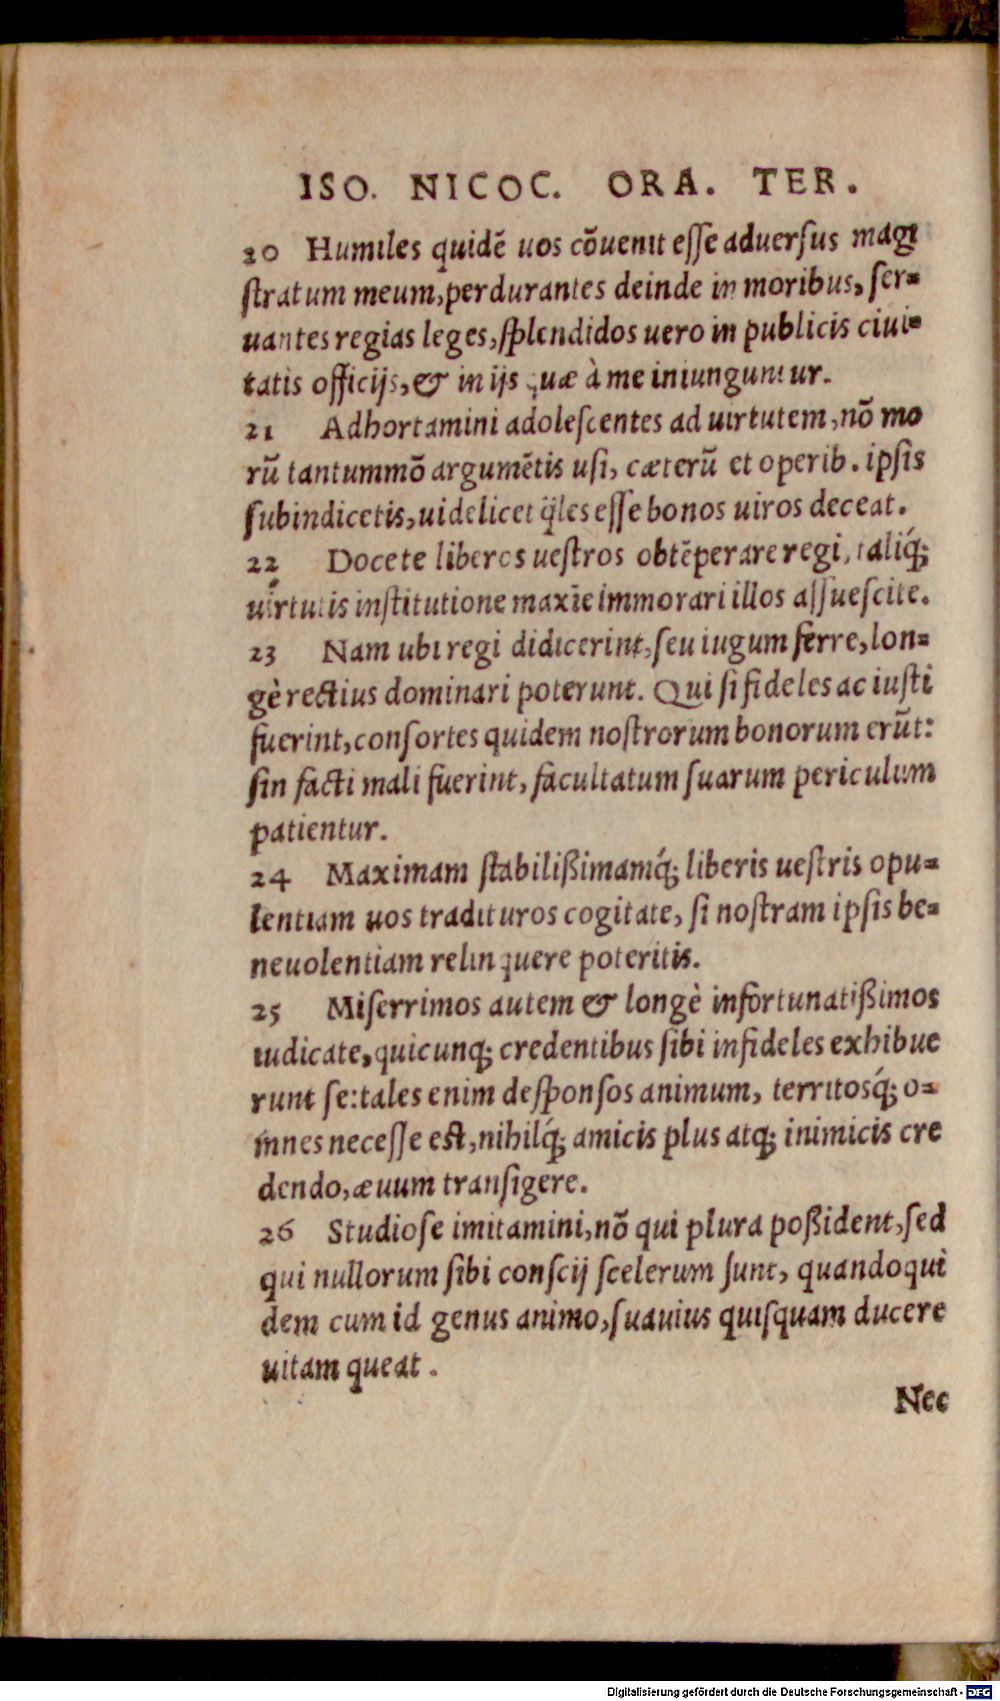 ISO. NICOC. ORA. TER.
20 Humiles quidē uos cōuenit eſſe aduerſus magi
ſtratum meum, perdurantes deinde in moribus, ſer-
uantes regias leges, ſplendidos uero in publicis ciui-
tatis officijs, & in ijs quæ à me iniunguntur.
21 Adhortamini adoleſcentes ad uirtutem, nō mo
rū tantummō argumētis uſi, cæterū et operib. ipſis
ſubindicetis, uidelicet q̃les eſſe bonos uiros deceat.
22 Docete liberos ueſtros obtēperare regi, taliq́;
uirtutis inſtitutione maxĩe immorari illos aſſueſcite.
23 Nam ubi regi didicerint, ſeu iugum ferre, lon-
gè rectius dominari poterunt. Qui ſi fideles ac iuſti
fuerint, conſortes quidem noſtrorum bonorum erūt:
ſin facti mali fuerint, facultatum ſuarum periculum
patientur.
24 Maximam ſtabilißimamq́; liberis ueſtris opu-
lentiam uos tradituros cogitate, ſi noſtram ipſis be-
neuolentiam relinquere poteritis.
25 Miſerrimos autem & longè infortunatißimos
iudicate, quicunq; credentibus ſibi infideles exhibue
runt ſe: tales enim deſponſos animum, territosq́; o-
mnes neceſſe eſt, nihilq́; amicis plus atq; inimicis cre
dendo, æuum tranſigere.
26 Studioſe imitamini, nō qui plura poßident, ſed
qui nullorum ſibi conſcij ſcelerum ſunt, quandoqui
dem cum id genus animo, ſuauius quiſquam ducere
uitam queat.
Nec
Digitalisierung gefördert durch die Deutsche Forschungsgemeinschaft - DFG